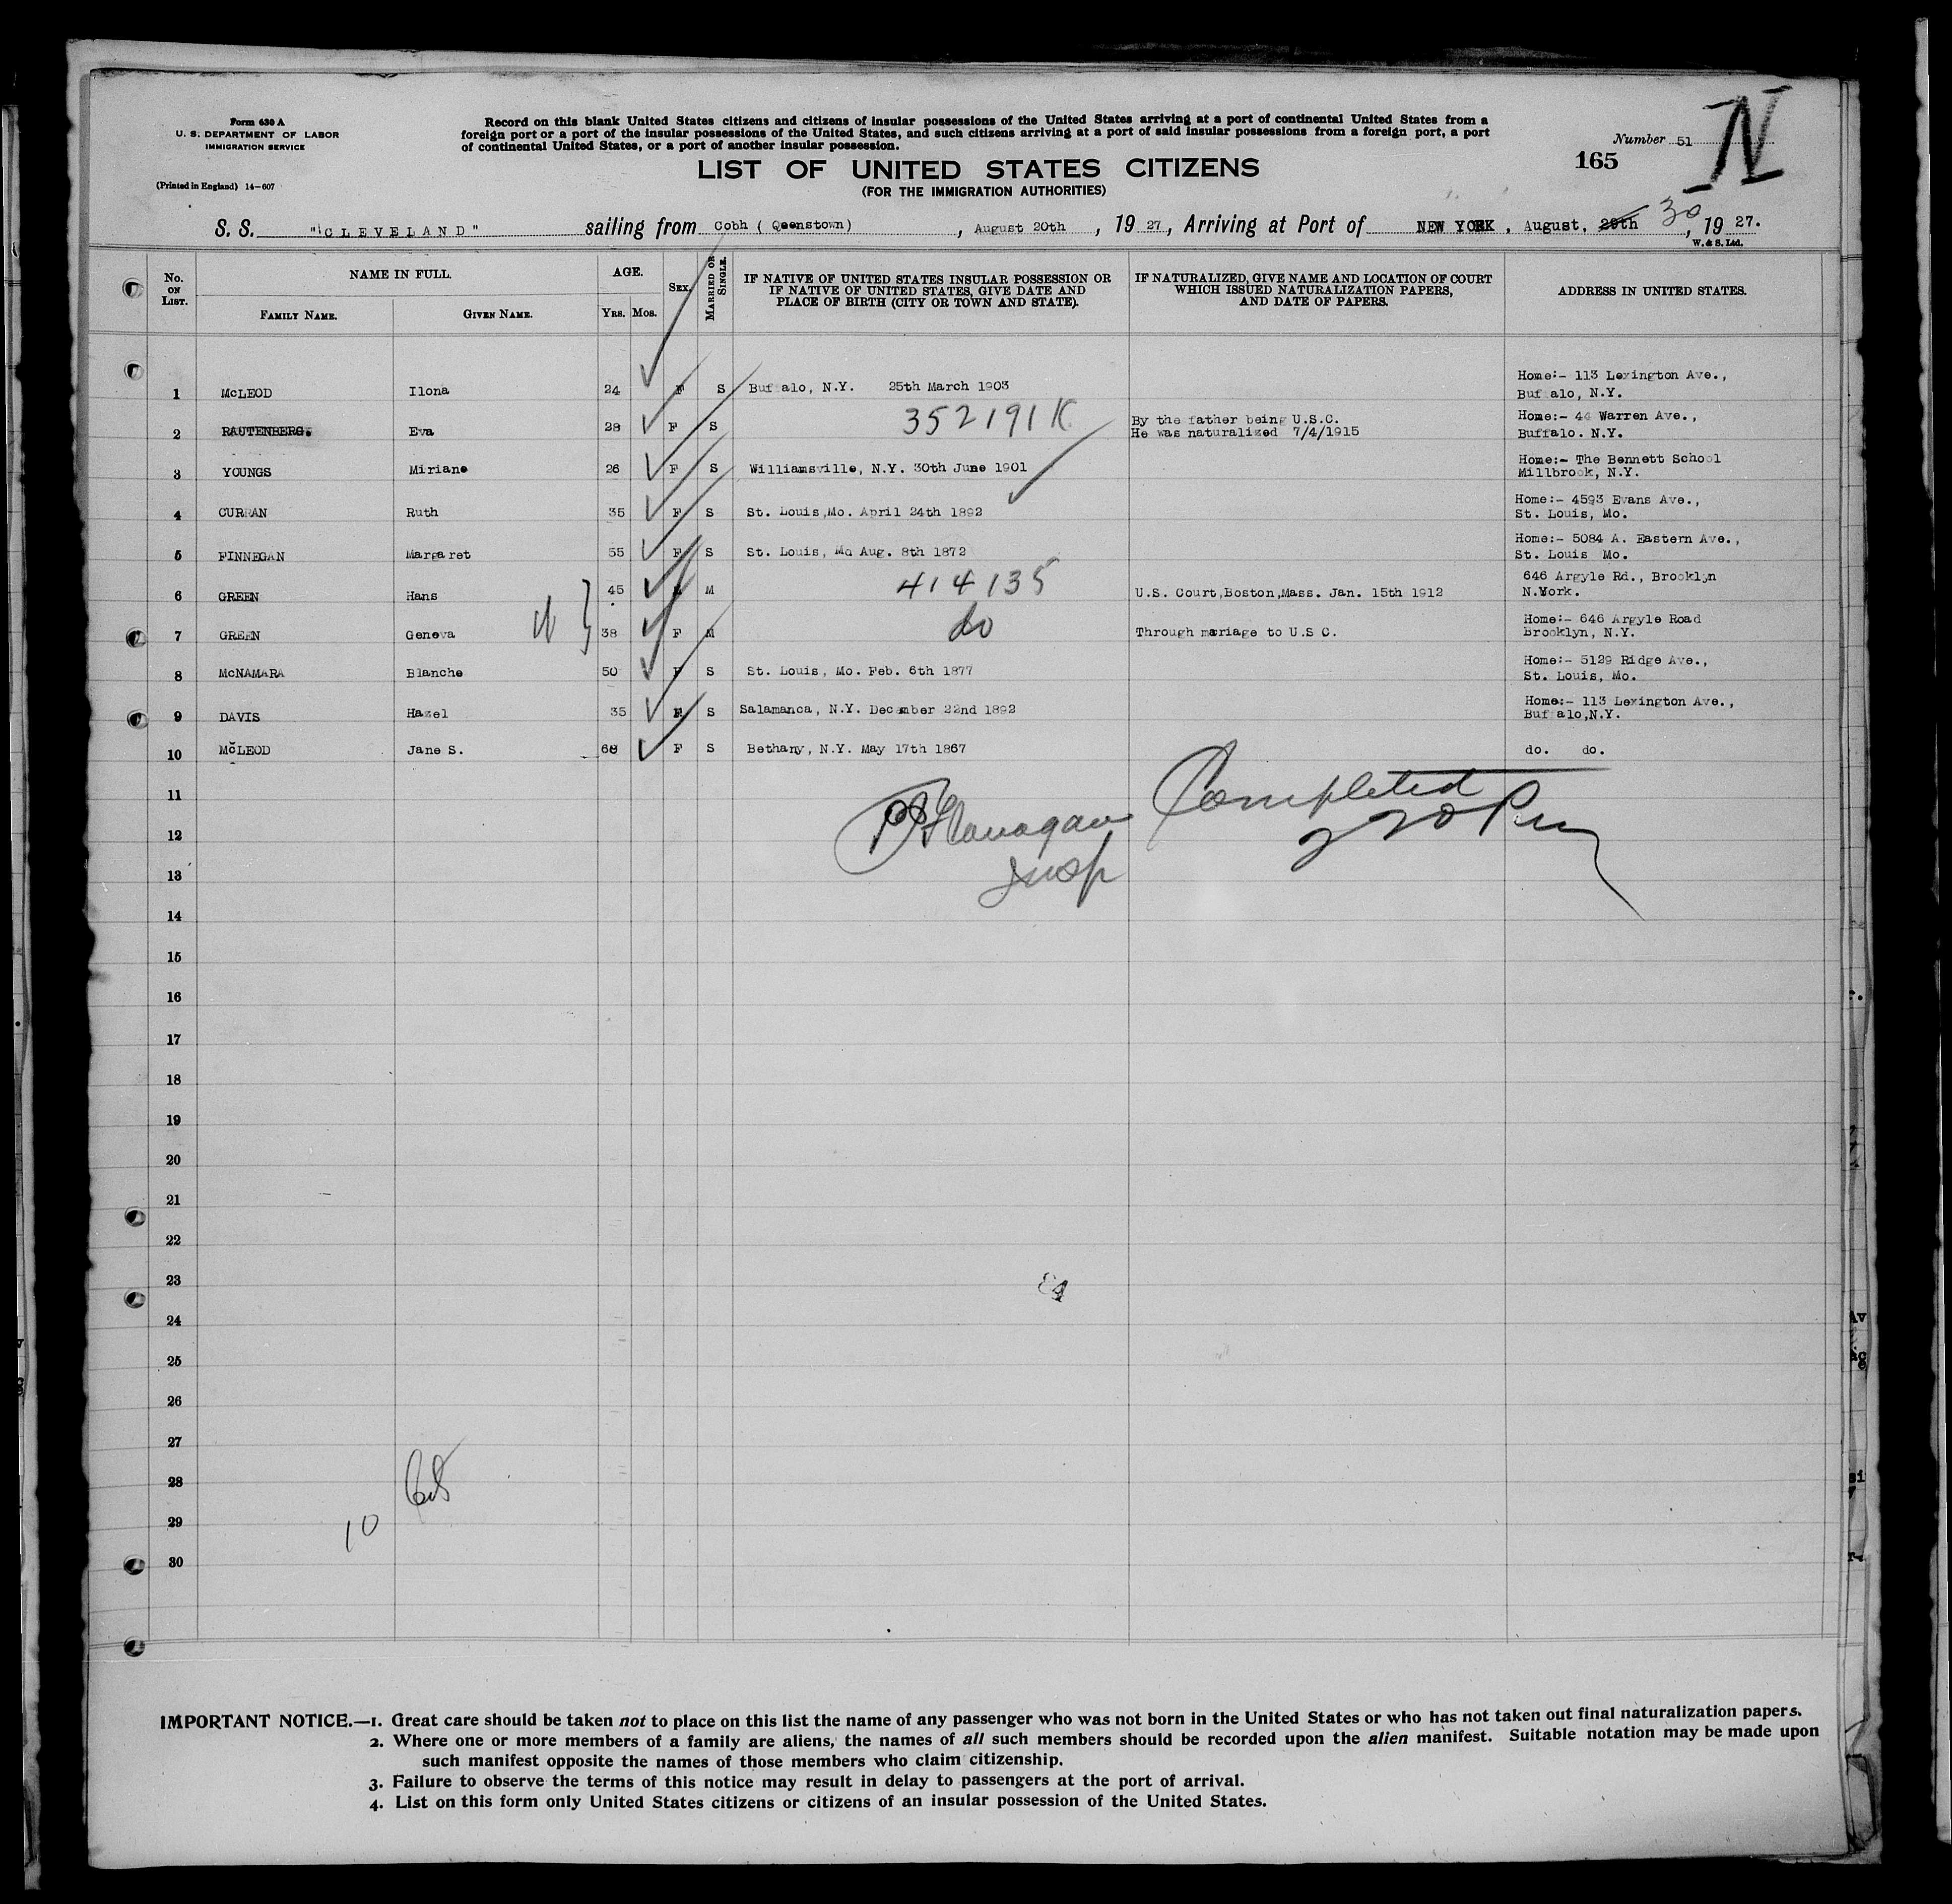 Form 630 A
U. S. DEPARTMENT OF LABOR
IMMIGRATION SERVICE
(Printed in England) 14-607
Record on this blank United States citizens and citizens of insular possessions of the United States arriving at a port of continental United States from a
foreign port or a port of the insular possessions of the United States, and such citizens arriving at a port of said insular possessions from a foreign port, a port
of continental United States, or a port of another insular possession.
LIST OF UNITED STATES CITIZENS
(FOR THE IMMIGRATION AUTHORITIES)
Number 51
165
N
S. S. "CLEVELAND" sailing from Cobh ( Qeenstown) , August 20th , 19 27, Arriving at Port of NEW YORK , August, 29th 30, 19 27.
W. & S. Ltd.
No. ON LIST. NAME IN FULL. AGE. SEX. MARRIED OR SINGLE. IF NATIVE OF UNITED STATES INSULAR POSSESSION OR IF NATIVE OF UNITED STATES, GIVE DATE AND PLACE OF BIRTH (CITY OR TOWN AND STATE). IF NATURALIZED, GIVE NAME AND LOCATION OF COURT WHICH ISSUED NATURALIZATION PAPERS, AND DATE OF PAPERS. ADDRESS IN UNITED STATES.
FAMILY NAME. GIVEN NAME. YRS. MOS.
1 McLEOD Ilona 24 F S Buffalo, N.Y. 25th March 1903 Home:- 113 Lexington Ave., Buffalo, N.Y.
2 RAUTENBERG. Eva 28 F S 352191 K By the father being U.S.C. He was naturalized 7/4/1915 Home:- 44 Warren Ave., Buffalo. N.Y.
3 YOUNGS Miriane 26 F S Williamsville, N.Y. 30th June 1901 Home:- The Bennett School Millbrook, N.Y.
4 CURRAN Ruth 35 F S St. Louis,Mo. April 24th 1892 Home:- 4593 Evans Ave., St. Louis, Mo.
5 FINNEGAN Margaret 55 F S St. Louis, Mo Aug. 8th 1872 Home:- 5084 A. Eastern Ave., St. Louis Mo.
6 GREEN Hans 45 M 414135 U.S. Court,Boston,Mass. Jan. 15th 1912 646 Argyle Rd., Brooklyn N.York.
7 GREEN Geneva 38 F M do Through mariage to U.S C. Home:- 646 Argyle Road Brooklyn, N.Y.
8 McNAMARA Blanche 50 F S St. Louis, Mo. Feb. 6th 1877 Home:- 5129 Ridge Ave., St. Louis, Mo.
9 DAVIS Hazel 35 F S Salamanca, N.Y. December 22nd 1892 Home:- 113 Lexington Ave., Buffalo,N.Y.
10 McLEOD Jane S. 60 F S Bethany, N.Y. May 17th 1867 do. do.
11
12
13
14
15
16
17
18
19
20
21
22
23
24
25
26
27
28
29
30
Flanagan
Insp
Completed
84
10
IMPORTANT NOTICE.—1. Great care should be taken not to place on this list the name of any passenger who was not born in the United States or who has not taken out final naturalization papers.
2. Where one or more members of a family are aliens, the names of all such members should be recorded upon the alien manifest. Suitable notation may be made upon
such manifest opposite the names of those members who claim citizenship.
3. Failure to observe the terms of this notice may result in delay to passengers at the port of arrival.
4. List on this form only United States citizens or citizens of an insular possession of the United States.